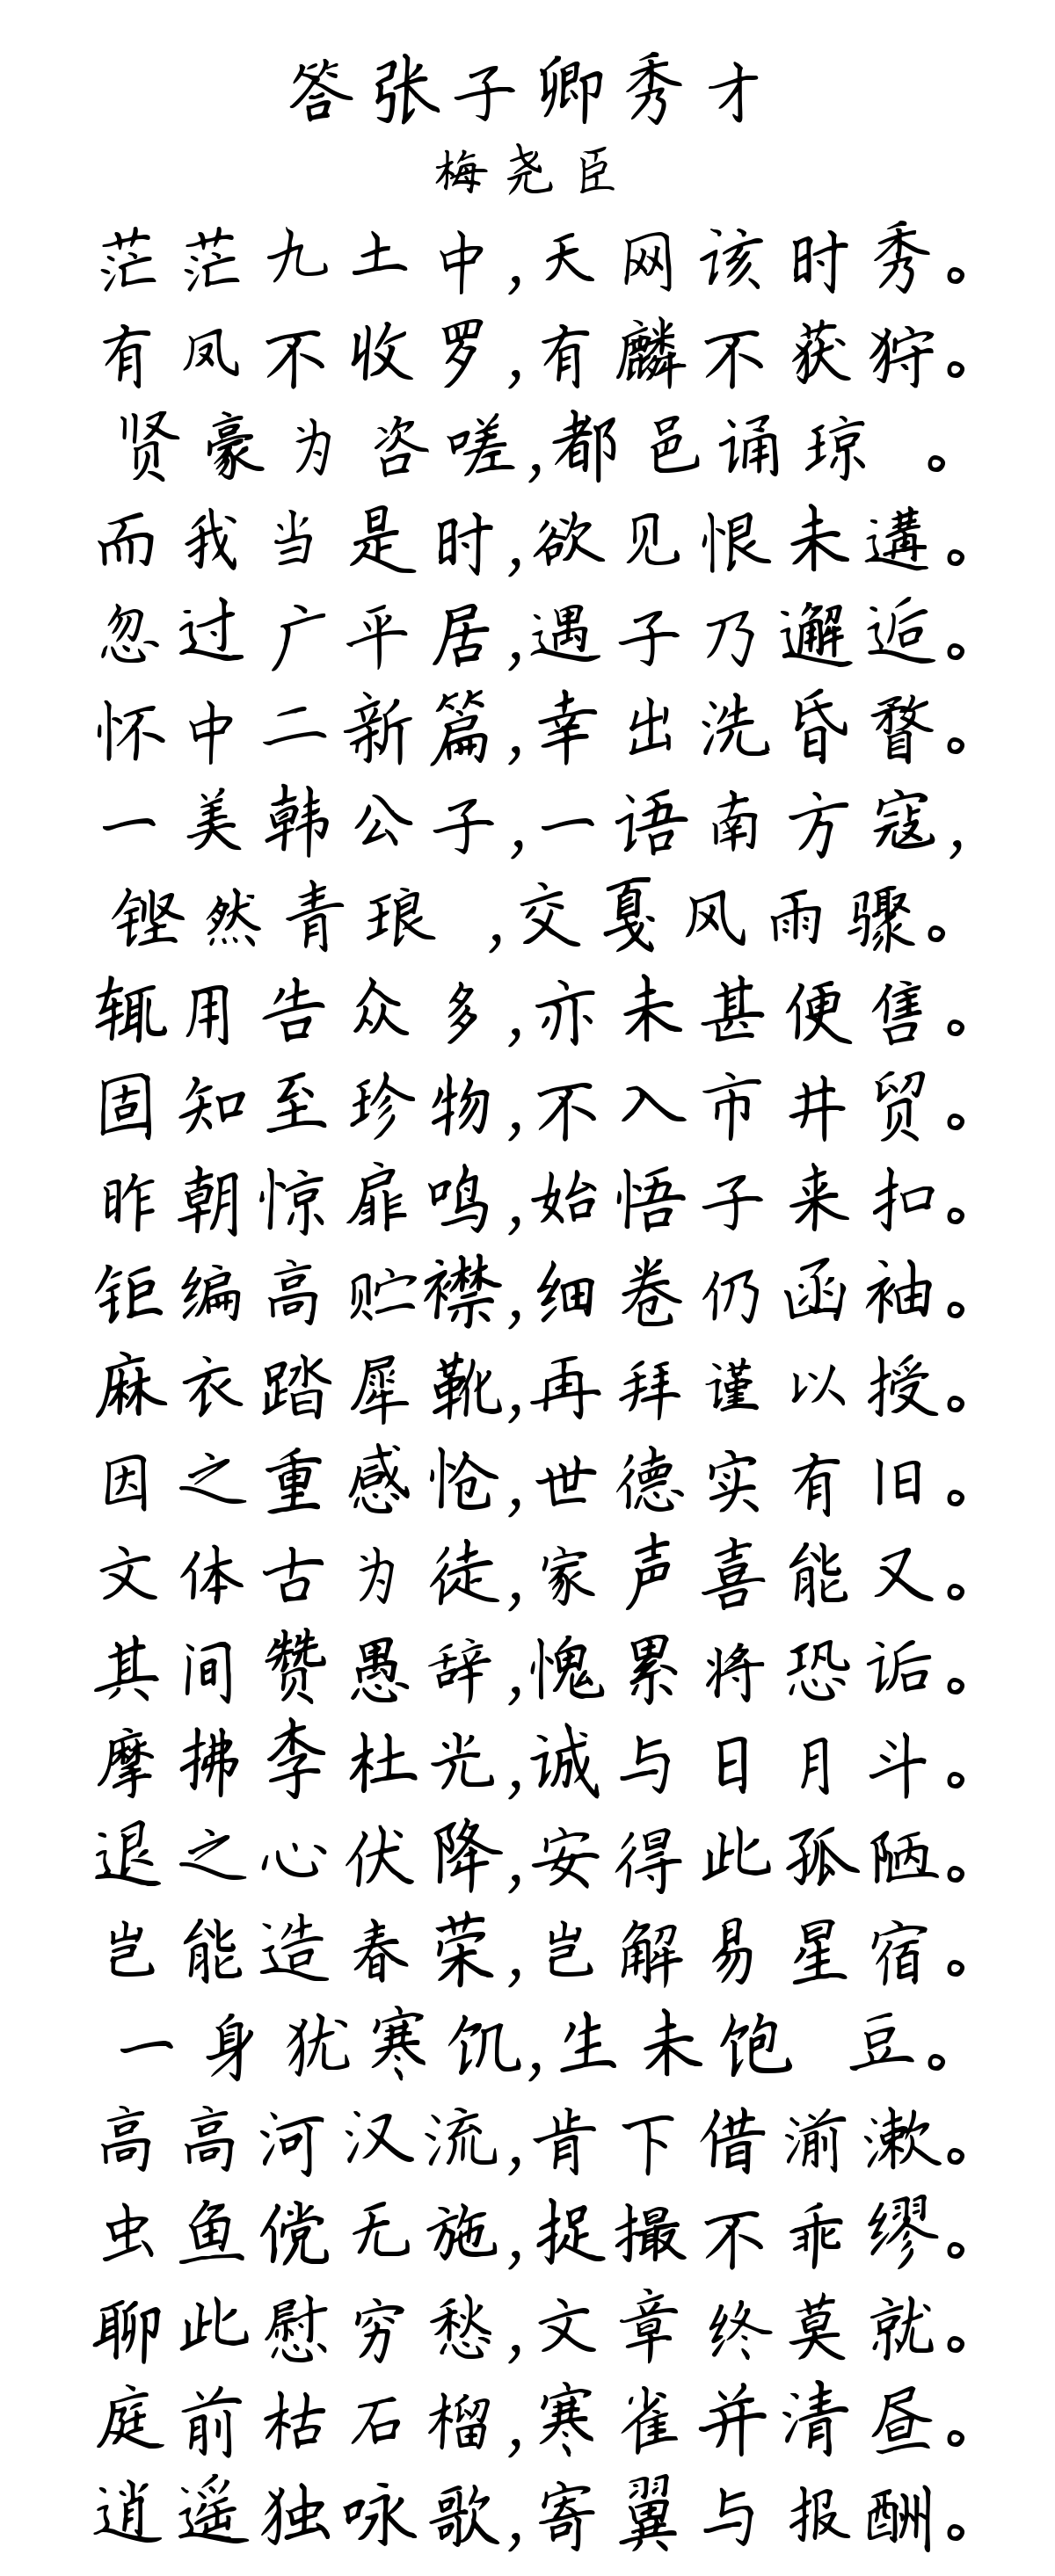 答张子卿秀才
梅尧臣
茫茫九土中,天网该时秀。
有凤不收罗,有麟不获狩。
贤豪为咨嗟,都邑诵琼 。
而我当是时,欲见恨未遘。
忽过广平居,遇子乃邂逅。
怀中二新篇,幸出洗昏瞀。
一美韩公子,一语南方寇,
铿然青琅 ,交戛风雨骤。
辄用告众多,亦未甚便售。
固知至珍物,不入市井贸。
昨朝惊扉鸣,始悟子来扣。
钜编高贮襟,细卷仍函袖。
麻衣踏犀靴,再拜谨以授。
因之重感怆,世德实有旧。
文体古为徒,家声喜能又。
其间赞愚辞,愧累将恐诟。
摩拂李杜光,诚与日月斗。
退之心伏降,安得此孤陋。
岂能造春荣,岂解易星宿。
一身犹寒饥,生未饱 豆。
高高河汉流,肯下借湔漱。
虫鱼傥无施,捉撮不乖缪。
聊此慰穷愁,文章终莫就。
庭前枯石榴,寒雀并清昼。
逍遥独咏歌,寄翼与报酬。